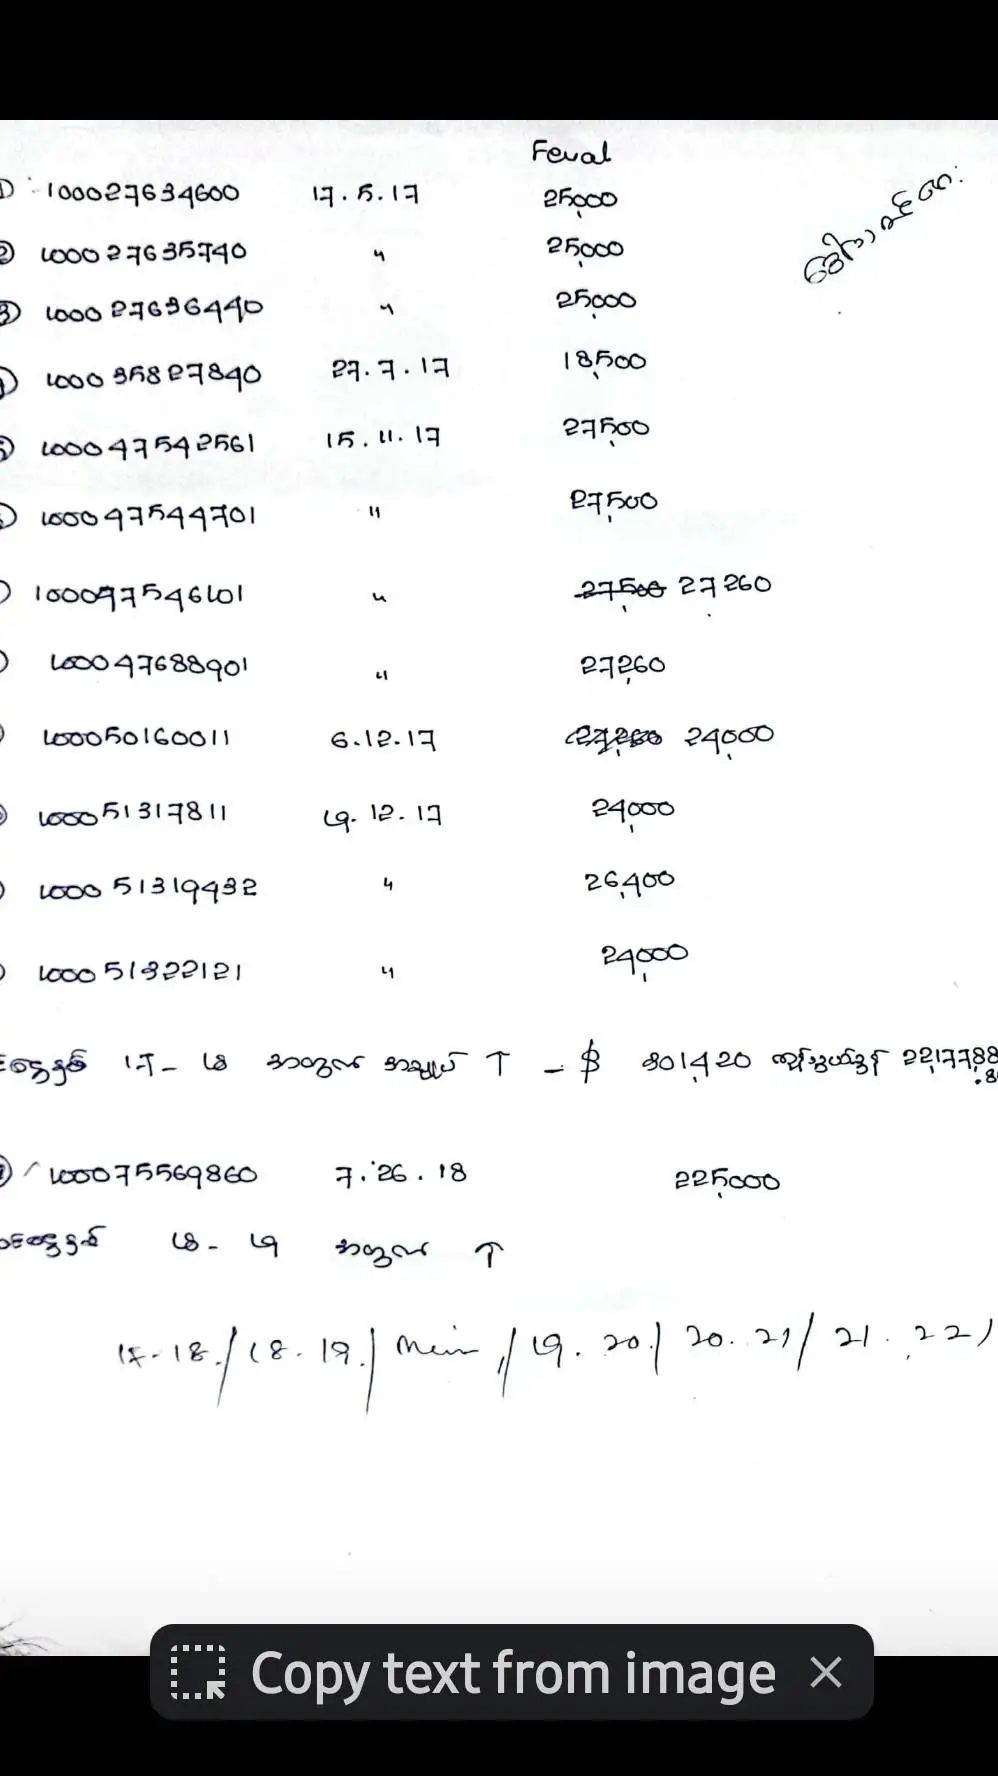 Feval
① 100027634600 17.5.17 25,000
② 100027635740 " 25,000
③ 100027636440 " 25,000
100035827840 27.7.17 18,500
100047542561 15.11.17 27,500
100047544701 " 27,500
100047546101 " 27,500 27260
100047688901 " 27,260
100050160011 6.12.17 27,260 24,000
100051317811 19.12.17 24,000
100051319432 " 26,400
100051322121 " 24,000
17-18 အတွက် အချုပ် ↑ - $ 301,420
100075569860 7.26.18 225,000
18-19 အတွက် ↑
17-18./18-19./ /19.20./20.21/21.22/
Copy text from image